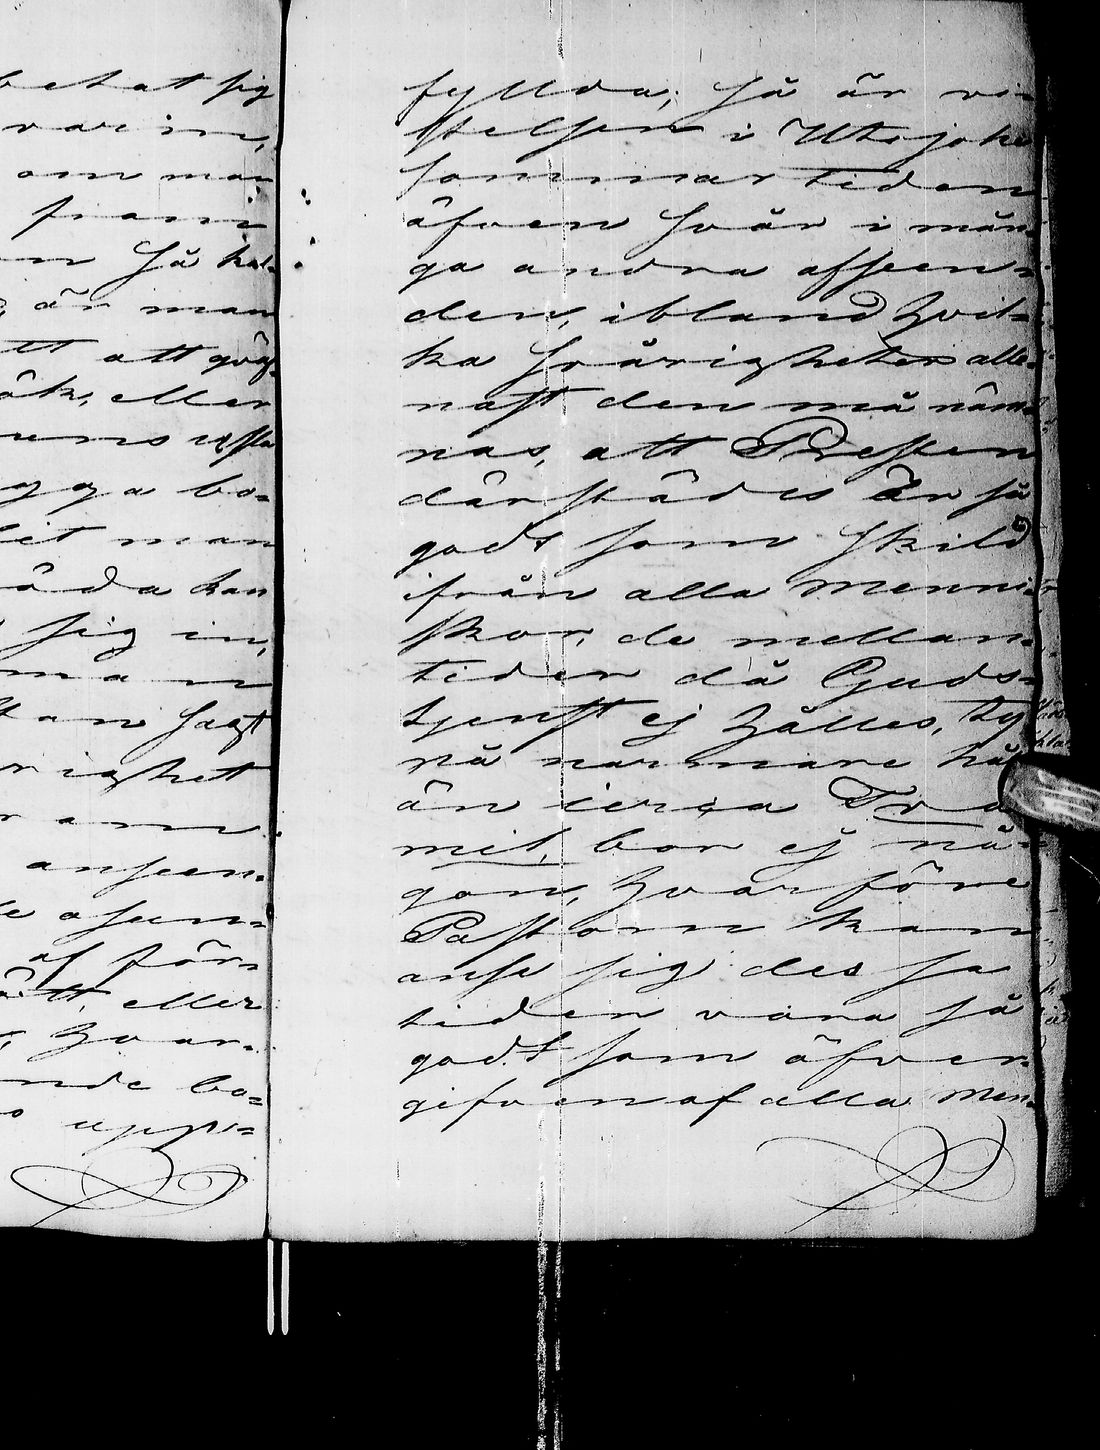 betat sig
var in,
om man
fram
en så kal-
är man
tt att gräf-
ök, eller
ens usla
ygga bo-
lit man
öda kan
sig in,
man
tan sagt
righet
ram
anseen-
e aseen-
af för-
ått, eller
, hvar-
nde bo-
upp-
fyllda; så är vi-
stelsen i Utsjoki
sommartiden
äfven svår i mån-
ga andra afseen-
den, ibland hvil-
ka svårigheter alle-
nast den må näm-
nas, att Presten
därstädes är så
godt som skild
ifrån alla menni-
skor, de mellan-
tider då Guds-
tjenst ej hålles, ty
nå narmare hål
än circa Tre
mil, bor ej nå-
gon, hvarföre
Pastorn kan
anse sig des sa
tiden vara så
godt som öfver-
gifven af alla Men-